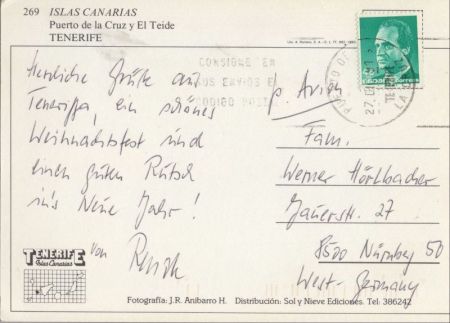 269 ISLAS CANARIAS
Puerto de la Cruz y El Teide
TENERIFE
CONSIGNE EN
SUS ENVIOS E
CODIGO POSTA
Herzliche Grüße aus
Teneriffa, ein schönes
Weihnachtsfest und
einen guten Rutsch
ins Neue Jahr!
von
p. Avion
Fam.
Werner Hörlbacher
Jauerstr. 27
8500 Nürnberg 50
West-Germany
TENERIFE
Islas Canarias
Fotografía: J.R. Anibarro H. Distribución: Sol y Nieve Ediciones. Tel: 386242